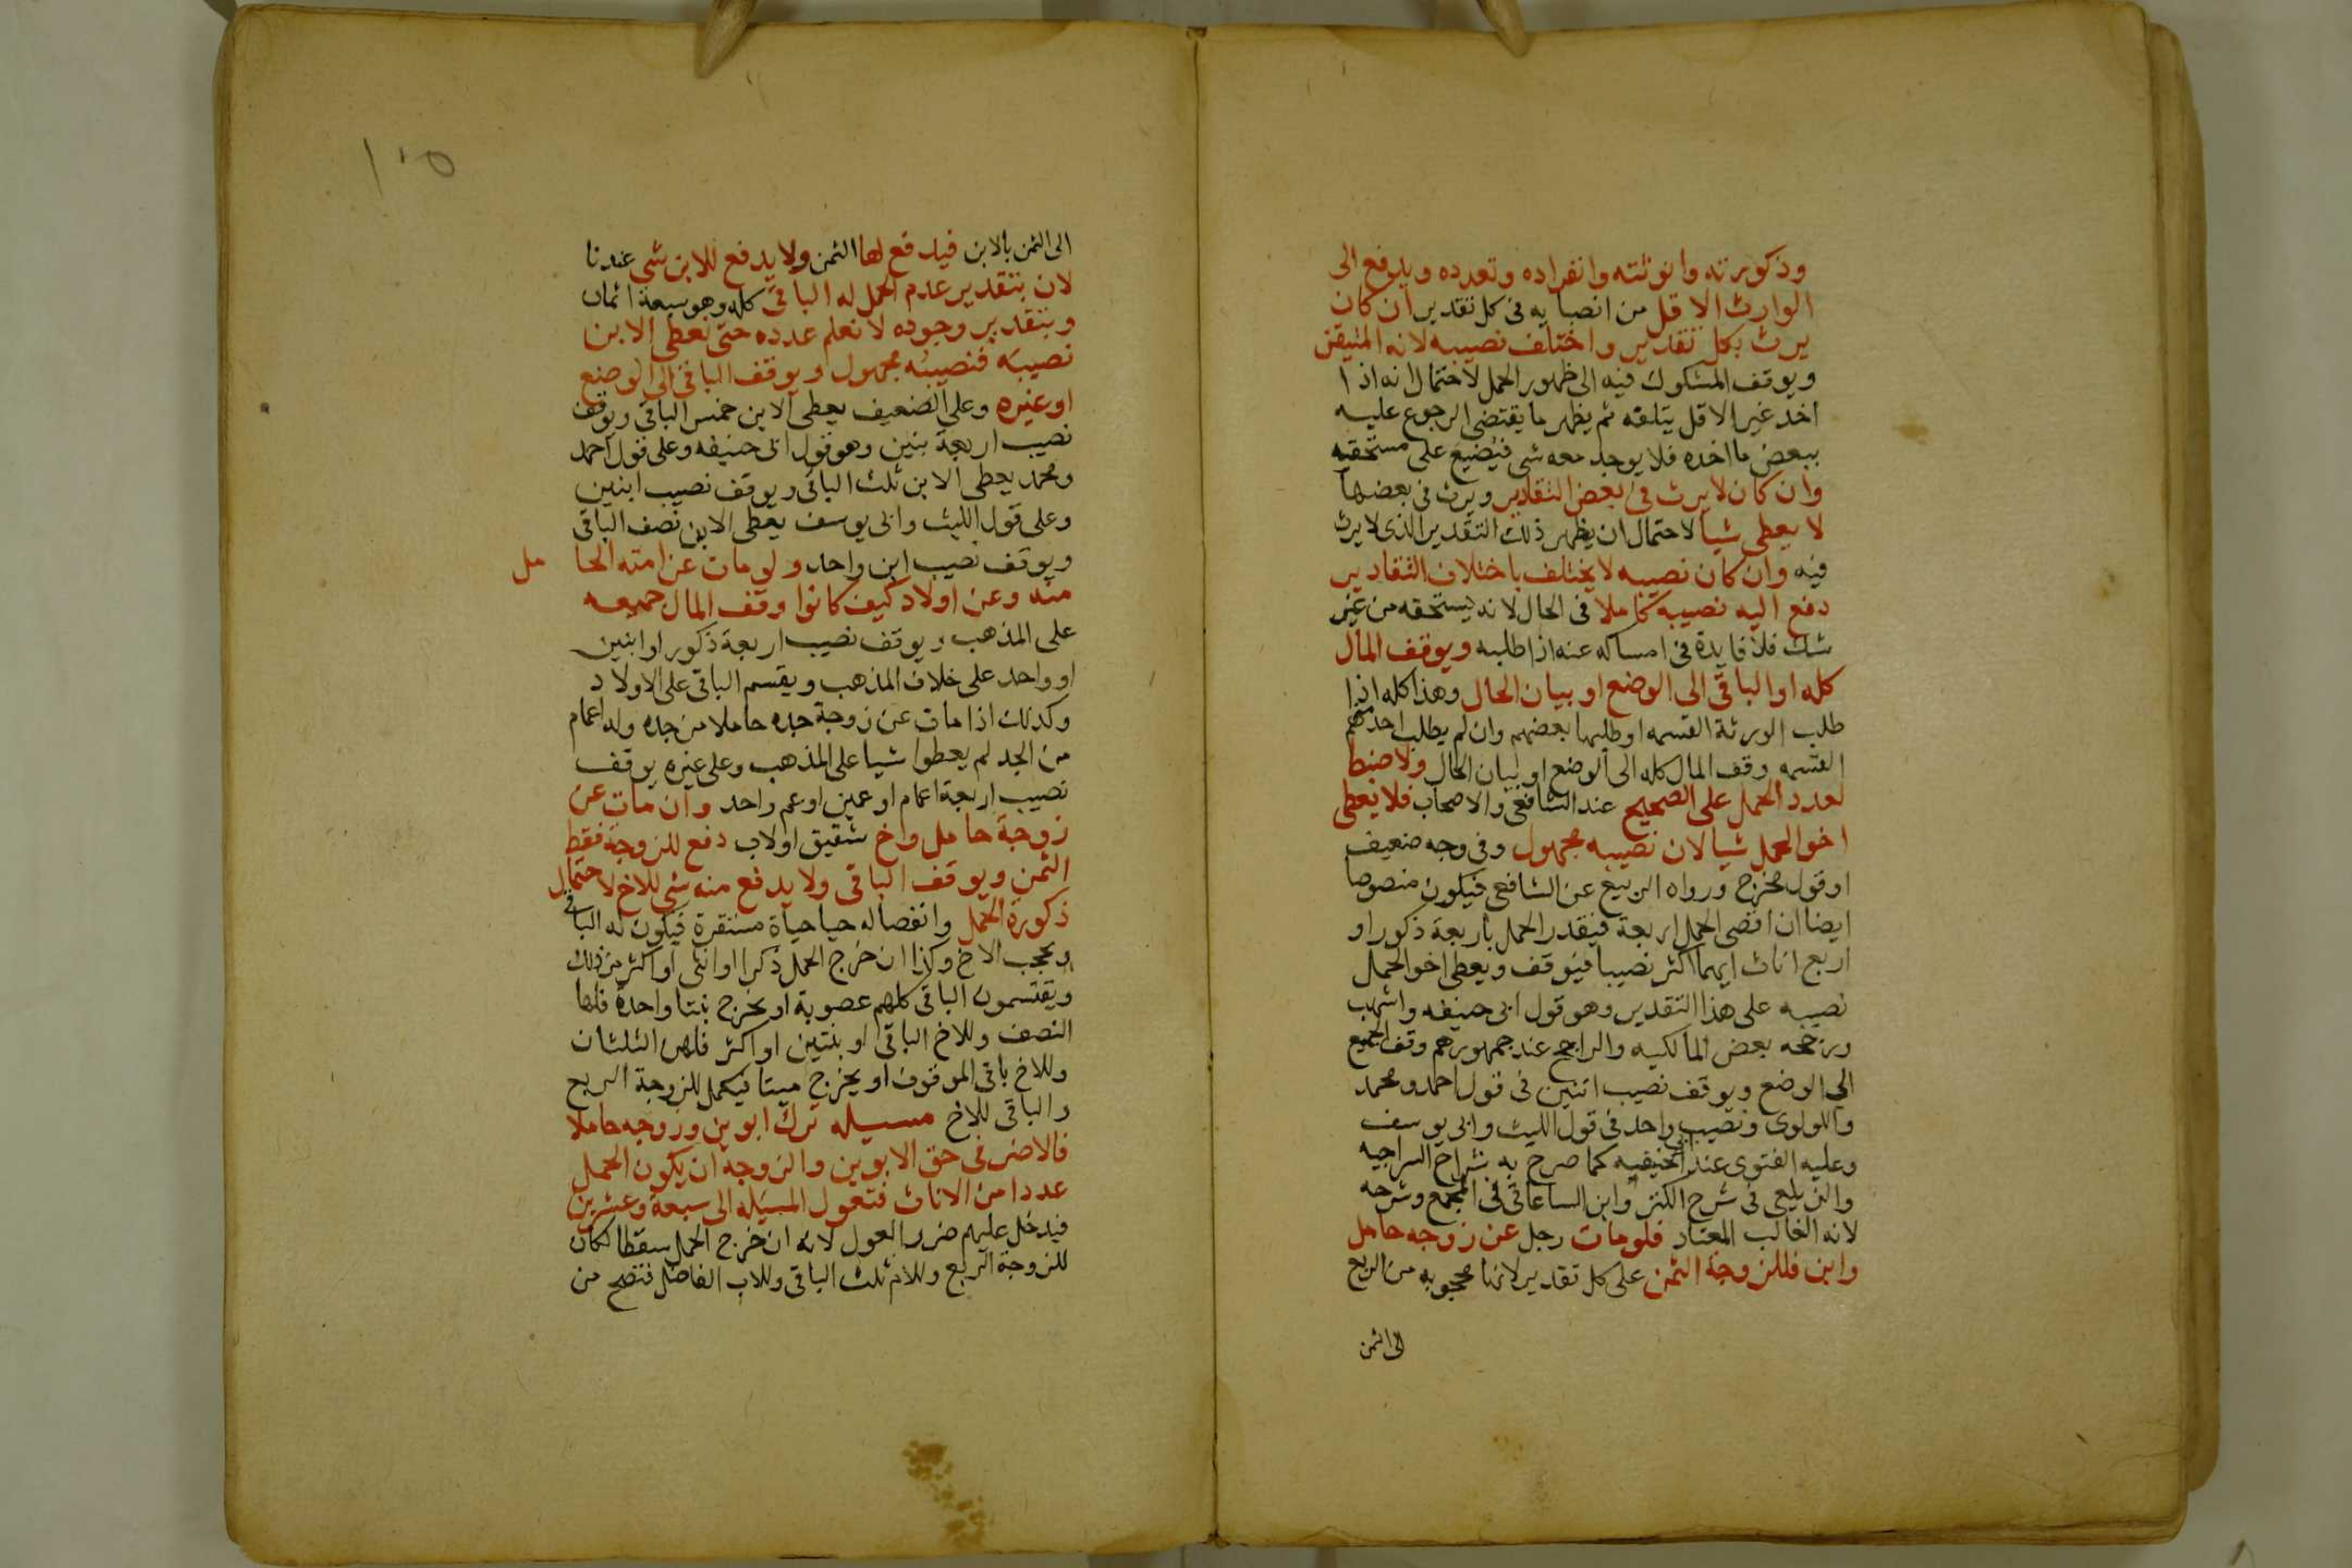 وذكورته وانوثته وانفراده وتعدده ويدفع الى
الوارث الاقل من انصبايه فى كل تقدير ان كان
يرث بكل تقدير واختلف نصيبه لانه المتيقن
ويوقف المشكوك فيه الى ظهور الحمل لاحتمال انه اذا
اخذ غير الاقل يتلفه ثم يظهر ما يقتضى الرجوع عليه
ببعض ما اخذه فلا يوجد معه شى فيضيع على مستحقه
وان كان لا يرث فى بعض التقادير ويرث فى بعضها
لا يعطى شيا لاحتمال ان يظهر ذلك التقدير الذى لا يرث
فيه وان كان نصيبه لا يختلف باختلاف التقادير
دفع اليه نصيبه كاملا فى الحال لانه يستحقه من غير
شك فلا فايدة فى امساكه عنه اذا طلبه ويوقف المال
كله او الباقى الى الوضع او بيان الحال وهذا كله اذا
طلب الورثة القسمه او طلبها بعضهم وان لم يطلب احد منهم
القسمه وقف المال كله الى الوضع او لبيان الحال ولا ضبط
لعدد الحمل على الصحيح عند الشافعى والاصحاب فلا يعطى
اخو الحمل شيا لان نصيبه مجهول وفى وجه ضعيف
او قول مخرج ورواه الربيع عن الشافعى فيكون منصوصا
ايضا ان اقصى الحمل اربعة فيقدر الحمل باربعة ذكور او
اربع اناث ايهما اكثر نصيبا فيوقف ويعطى اخو الحمل
نصيبه على هذا التقدير وهو قول ابى حنيفه واشهب
ورجحه بعض المالكيه والراجح عند جمهورهم وقف الجميع
الى الوضع ويوقف نصيب اثنين فى قول احمد ومحمد
واللولوى ونصيب واحد فى قول الليث وابى يوسف
وعليه الفتوى عند الحنفيه كما صرح به شراح السراجيه
والزيلعى فى شرح الكنز وابن الساعاتى فى المجمع وشرحه
لانه الغالب المعتاد فلو مات رجل عن زوجه حامل
وابن فللزوجة الثمن على كل تقدير لانها محجوبه من الربع
الى الثمن
١٠٥
الى الثمن بالابن فيدفع لها الثمن ولا يدفع للابن شى عندنا
لان بتقدير عدم الحمل له الباقى كله وهو سبعة اثمان
وبتقدير وجوده لا نعلم عدده حتى نعطى الابن
نصيبه فنصيبه مجهول ويوقف الباقى الى الوضع
او غيره وعلى الضعيف يعطى الابن خمس الباقى ويوقف
نصيب اربعة بنين وهو قول ابى حنيفه وعلى قول احمد
ومحمد يعطى الابن ثلث الباقى ويوقف نصيب ابنين
وعلى قول الليث وابى يوسف يعطى الابن نصف الباقى
ويوقف نصيب ابن واحد ولو مات عن امته الحا مل
منه وعن اولاد كيف كانوا وقف المال جميعه
على المذهب ويوقف نصيب اربعة ذكور او ابنين
او واحد على خلاف المذهب ويقسم الباقى على الاولاد
وكذلك اذا مات عن زوجة جده حاملا من جده وله اعمام
من الجد لم يعطوا شيا على المذهب وعلى غيره يوقف
نصيب اربعة اعمام او عمين او عم واحد وان مات عن
زوجة حامل واخ شقيق او لاب دفع للزوجة فقط
الثمن ويوقف الباقى ولا يدفع منه شى للاخ لاحتمال
ذكورة الحمل وانفصاله حيا حياة مستقرة فيكون له الباقى
ويحجب الاخ وكذا ان خرج الحمل ذكرا او انثى او اكثر من ذلك
ويقتسمون الباقى كلهم عصوبة او يخرج بنتا واحدة فلها
النصف وللاخ الباقى او بنتين او اكثر فلهن الثلثان
وللاخ باقى الموقوف او يخرج ميتا فيكمل للزوجة الربع
والباقى للاخ مسيله ترك ابوين وزوجه حاملا
فالاضر فى حق الابوين والزوجة ان يكون الحمل
عددا من الاناث فتعول المسيله الى سبعة وعشرين
فيدخل عليهم ضرر العول لانه ان خرج الحمل سقطا لكان
للزوجة الربع وللام ثلث الباقى وللاب الفاضل فتصح من